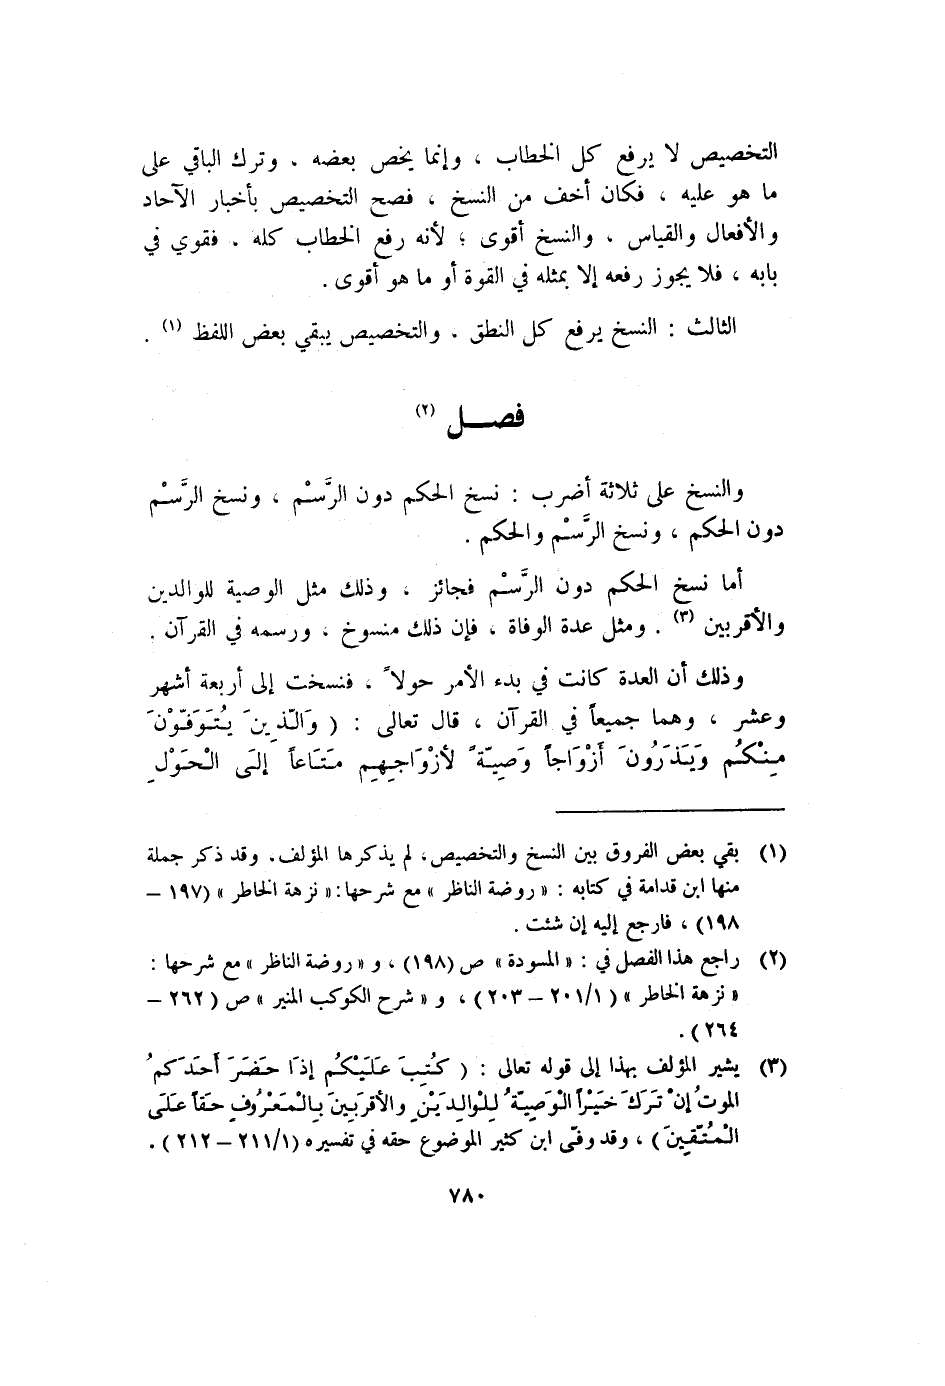 التخصيص لا يرفع كل الخطاب ، وإنما يخص بعضه . وترك الباقي على
ما هو عليه ، فكان أخف من النسخ ، فصح التخصيص بأخبار الآحاد
والأفعال والقياس . والنسخ أقوى ؛ لأنه رفع الخطاب كله . فقوي في
بابه ، فلا يجوز رفعه إلا بمثله في القوة أو ما هو أقوى .
الثالث : النسخ يرفع كل النطق . والتخصيص يبقي بعض اللفظ (١) .
فصـــل (٢)
والنسخ على ثلاثة أضرب : نسخ الحكم دون الرَّسْم ، ونسخ الرَّسْم
دون الحكم ، ونسخ الرَّسْم والحكم .
أما نسخ الحكم دون الرَّسْم فجائز ، وذلك مثل الوصية للوالدين
والأقربين (٣) . ومثل عدة الوفاة ، فإن ذلك منسوخ ، ورسمه في القرآن .
وذلك أن العدة كانت في بدء الأمر حولاً ، فنسخت إلى أربعة أشهر
وعشر ، وهما جميعاً في القرآن ، قال تعالى : ( وَالّذِينَ يُتَوَفّوْنَ
مِنْكُم وَيَذَرُونَ أَزْوَاجاً وَصِيّةً لأزْوَاجِهِم مَتَاعاً إلَى الْحَوْلِ
(١) بقي بعض الفروق بين النسخ والتخصيص، لم يذكرها المؤلف. وقد ذكر جملة
منها ابن قدامة في كتابه : « روضة الناظر » مع شرحها: « نزهة الخاطر » (١٩٧ –
١٩٨) ، فارجع إليه إن شئت .
(٢) راجع هذا الفصل في : « المسودة » ص (١٩٨) ، و « روضة الناظر » مع شرحها :
« نزهة الخاطر » ( ٢٠١/١ – ٢٠٣ ) ، و « شرح الكوكب المنير » ص ( ٢٦٢ –
٢٦٤ ) .
(٣) يشير المؤلف بهذا إلى قوله تعالى : ( كُتِبَ عَلَيْكُم إذَا حَضَرَ أحَدَكمُ
الموتُ إنْ تَرَكَ خَيْراً الْوَصِيّةُ لِلْوالِدَيْنِ والأقرَبِينَ بِالْمَعْرُوفِ حَقاً عَلَى
الْمُتّقِينَ ) ، وقد وفّى ابن كثير الموضوع حقه في تفسيره (٢١١/١ – ٢١٢ ) .
٧٨٠